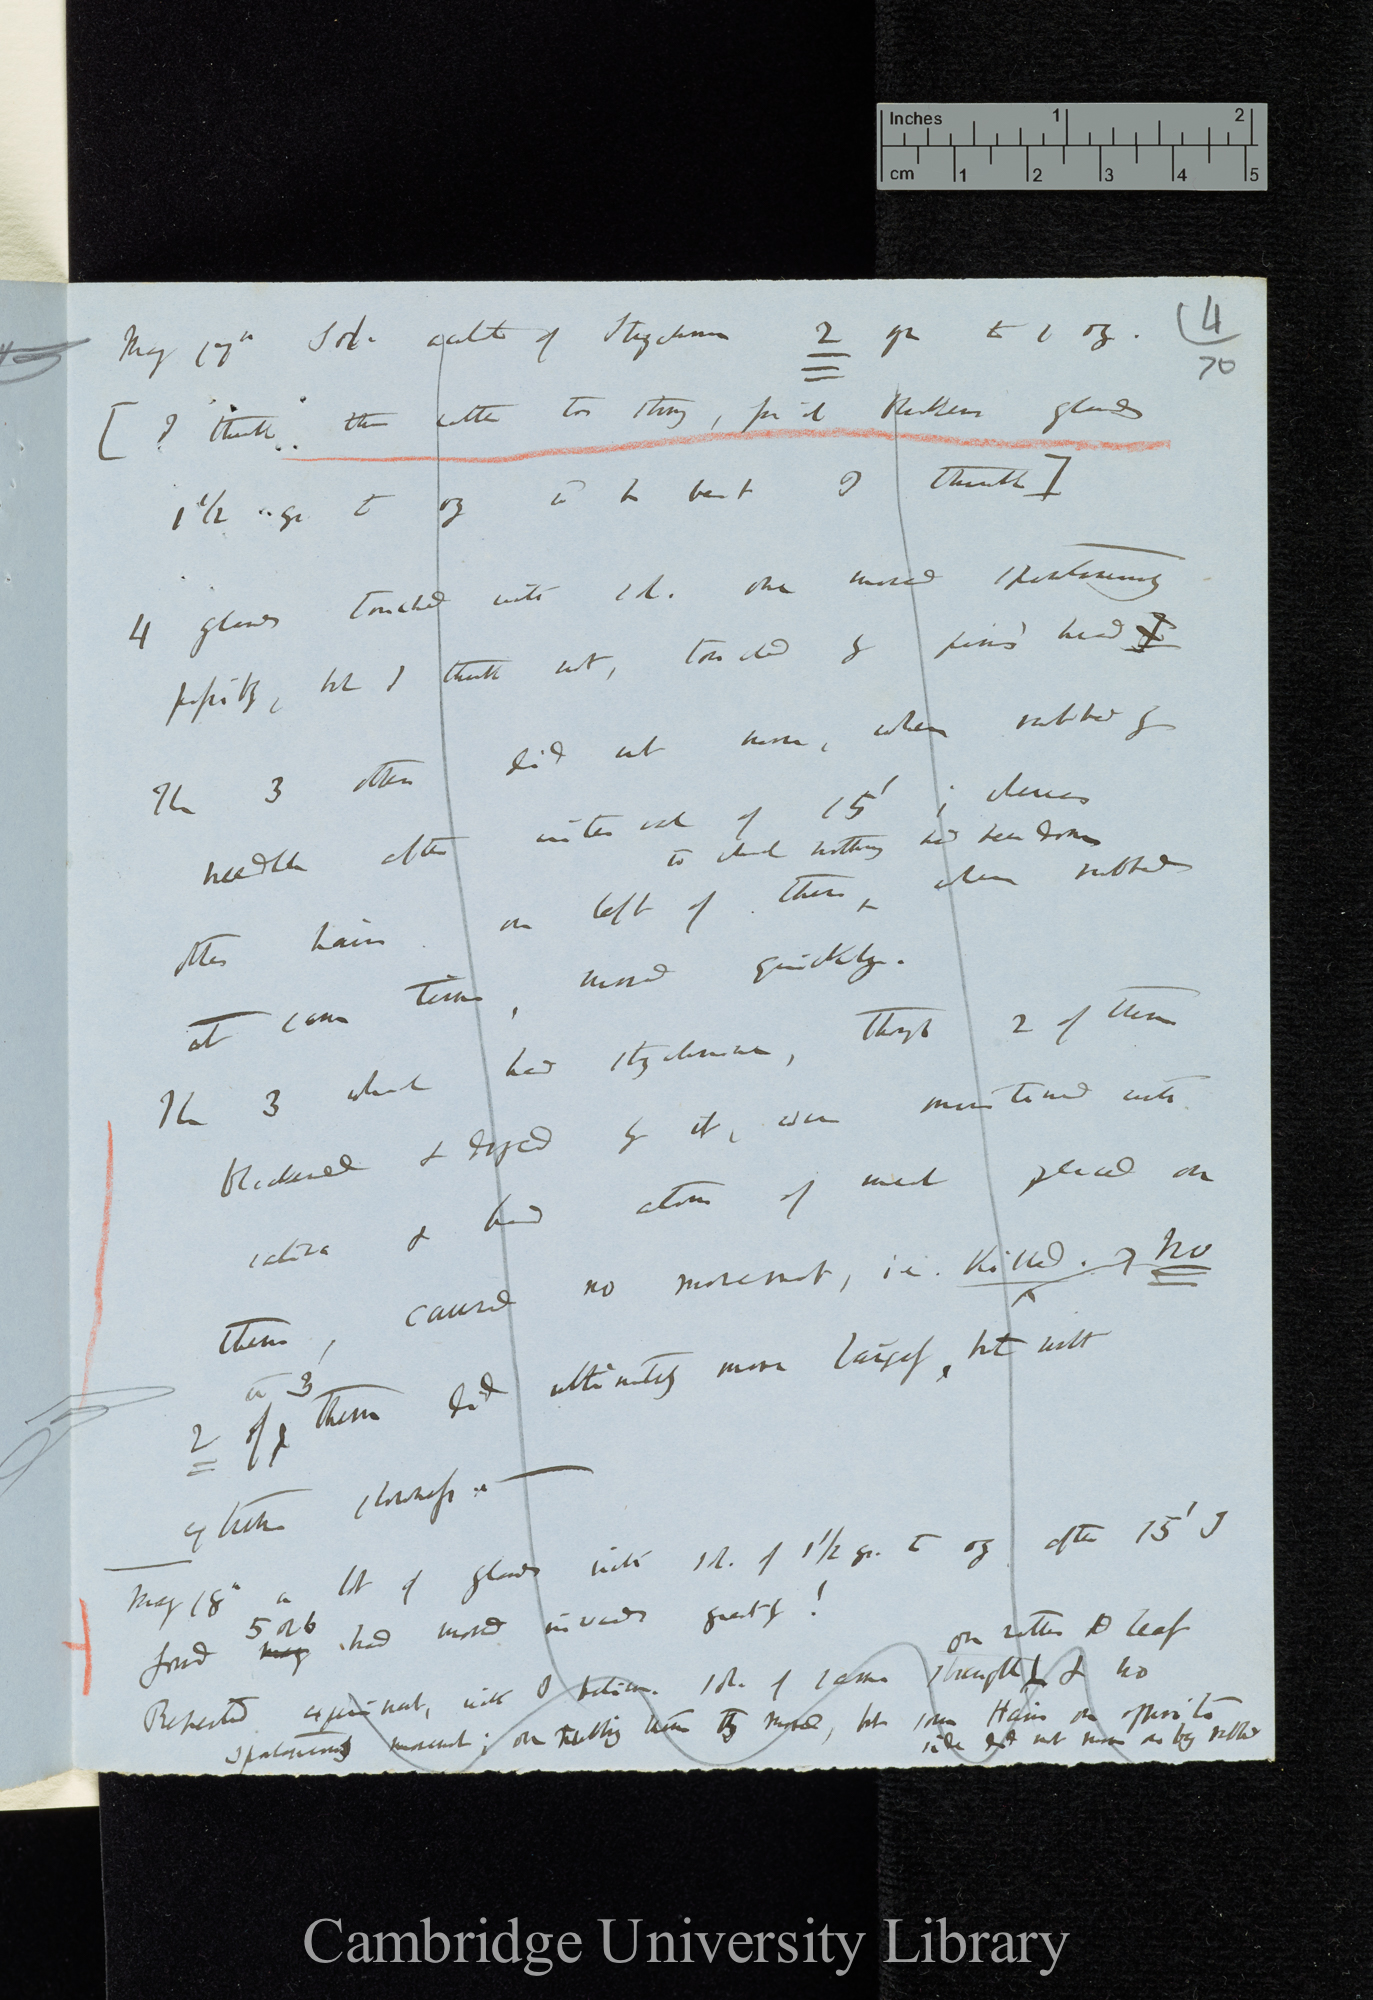 Inches 1 2
cm 1 2 3 4 5
4
70
May 17th Sol. of Strychnine 2 gr to 1 oz.
[I think this rather too strong, for it blackens glands
1 1/2 gr to oz to be best I think]
4 glands touched with sol. one moved spontaneously
possibly, but I think not, touched by pin's head
The 3 others did not move, when rubbed by
needle after interval of 15' ; whereas
to which nothing had been done
other hairs on left of these, when rubbed
at same time, moved quickly.
The 3 which had strychnine, though 2 of them
blackened & by it, were moistened with
saliva & had atom of meat placed on
them, caused no movement, i.e. killed. no
or 3
2 of them did ultimately move largely, but with
extreme slowness.
May 18th a lot of glands with sol. of 1 1/2 gr. to oz after 15' I
5 or 6
found many had moved inwards greatly!
on rather old leaf
Repeated experiment, with I believe sol. of same strength & no
spontaneous movement; on rubbing them they moved, but some Hairs on opposite
side did not move so by rubbing
Cambridge University Library